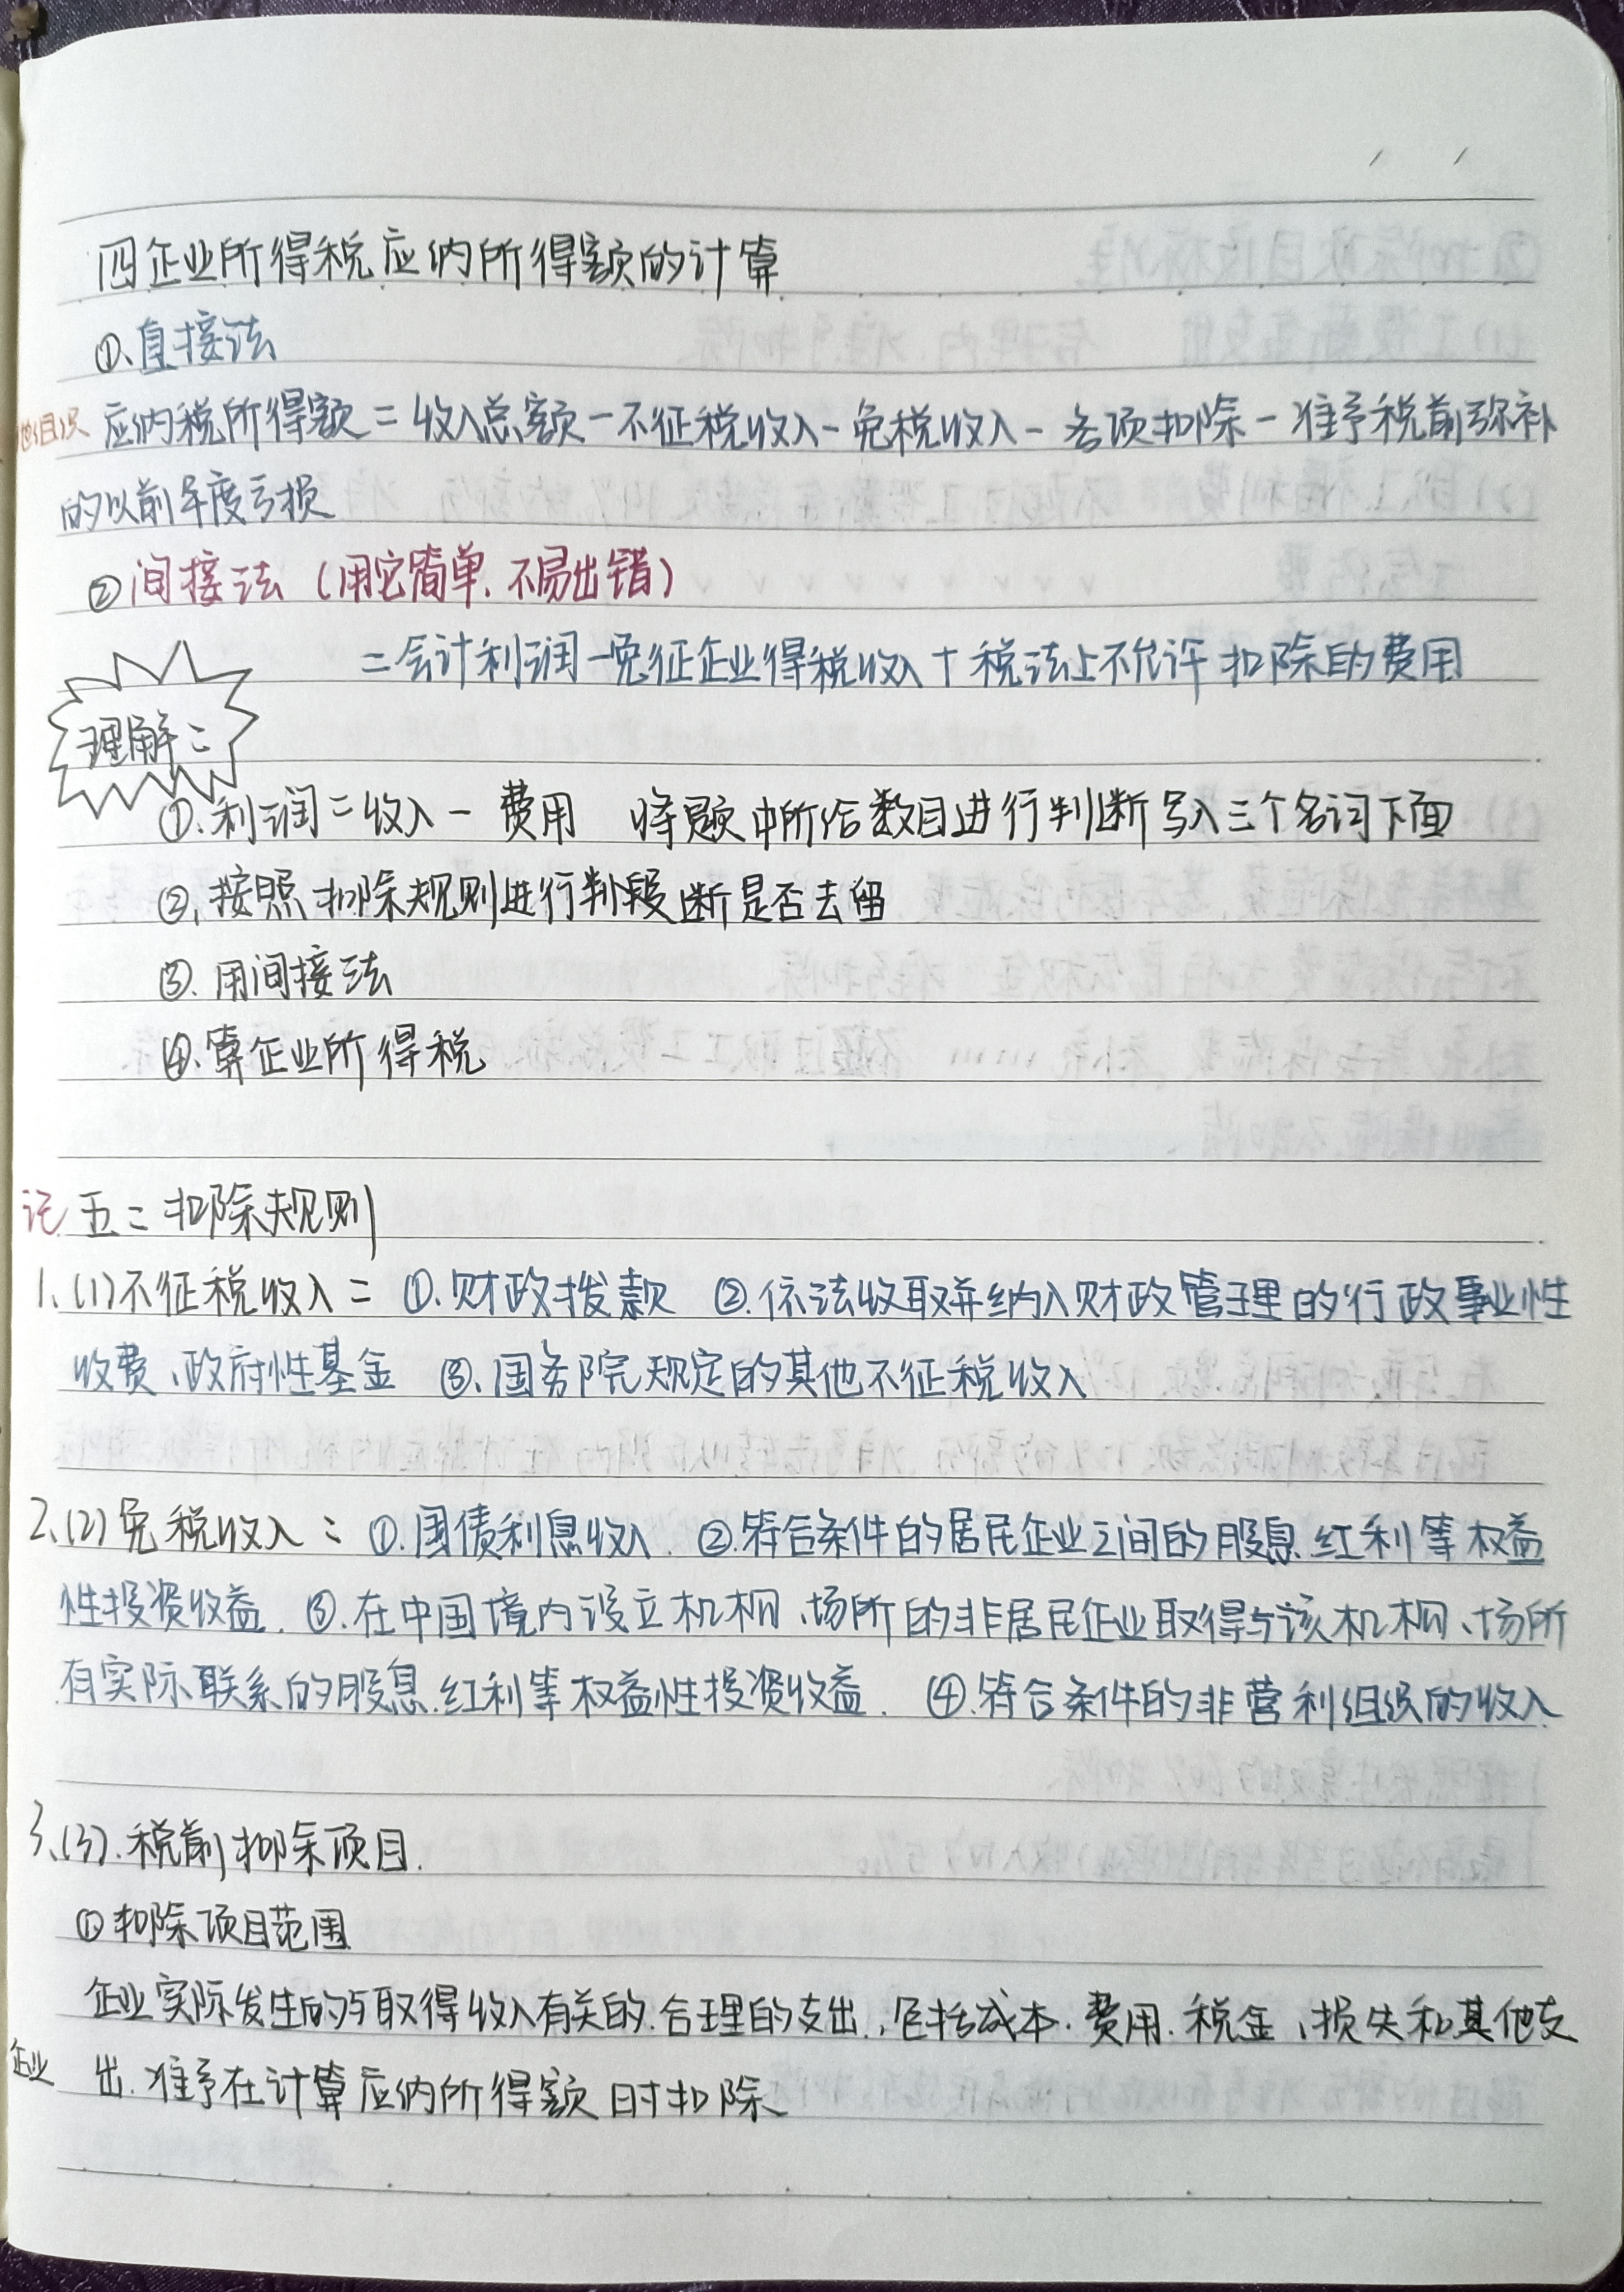 四企业所得税应纳所得额的计算
①、直接法
应纳税所得额=收入总额-不征税收入-免税收入-各项扣除-准予税前弥补
的以前年度亏损
②间接法(用它简单、不易出错)
=会计利润-免征企业得税收入+税法上不允许扣除的费用
理解:
①、利润=收入-费用 将题中所给数目进行判断写入三个名词下面
②、按照扣除规则进行判断是否去留
③、用间接法
④、算企业所得税
记 五:扣除规则
1、(1)不征税收入:①、财政拨款 ②、依法收取并纳入财政管理的行政事业性
收费、政府性基金 ③、国务院规定的其他不征税收入
2、(2)免税收入:①.国债利息收入. ②.符合条件的居民企业之间的股息.红利等权益
性投资收益. ③.在中国境内设立机构、场所的非居民企业取得与该机构、场所
有实际联系的股息.红利等权益性投资收益. ④.符合条件的非营利组织的收入.
3、(3).税前扣除项目.
①扣除项目范围
企业实际发生的与取得收入有关的.合理的支出.,包括成本.费用.税金、损失和其他支
企业 出.准予在计算应纳所得额时扣除.